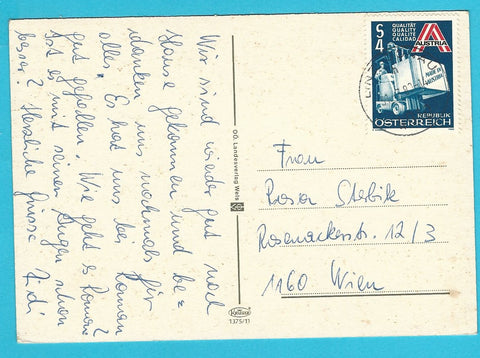 Wir sind wieder gut nach
Hause gekommen und be=
danken uns nochmals für
alles. Es hat uns bei
gut gefallen. Wie geht es
Ist es mit seinen Augen schon
besser? Herzliche Grüsse
OÖ. Landesverlag Wels
Krüger
1375/11
S 4
QUALITÄT
QUALITY
QUALITÉ
CALIDAD
AUSTRIA
MADE IN
AUSTRIA
REPUBLIK
ÖSTERREICH
Frau
Rosa
Rosenackerstr. 12/3
1160 Wien